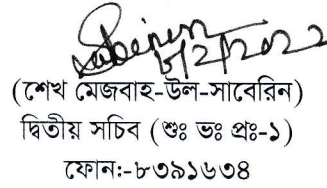 ৮/২/২০২২
(শেখ মেজবাহ-উল-সাবেরিন)
দ্বিতীয় সচিব (শুঃ ভঃ প্রঃ-১)
ফোন:-৮৩৯১৬৩৪